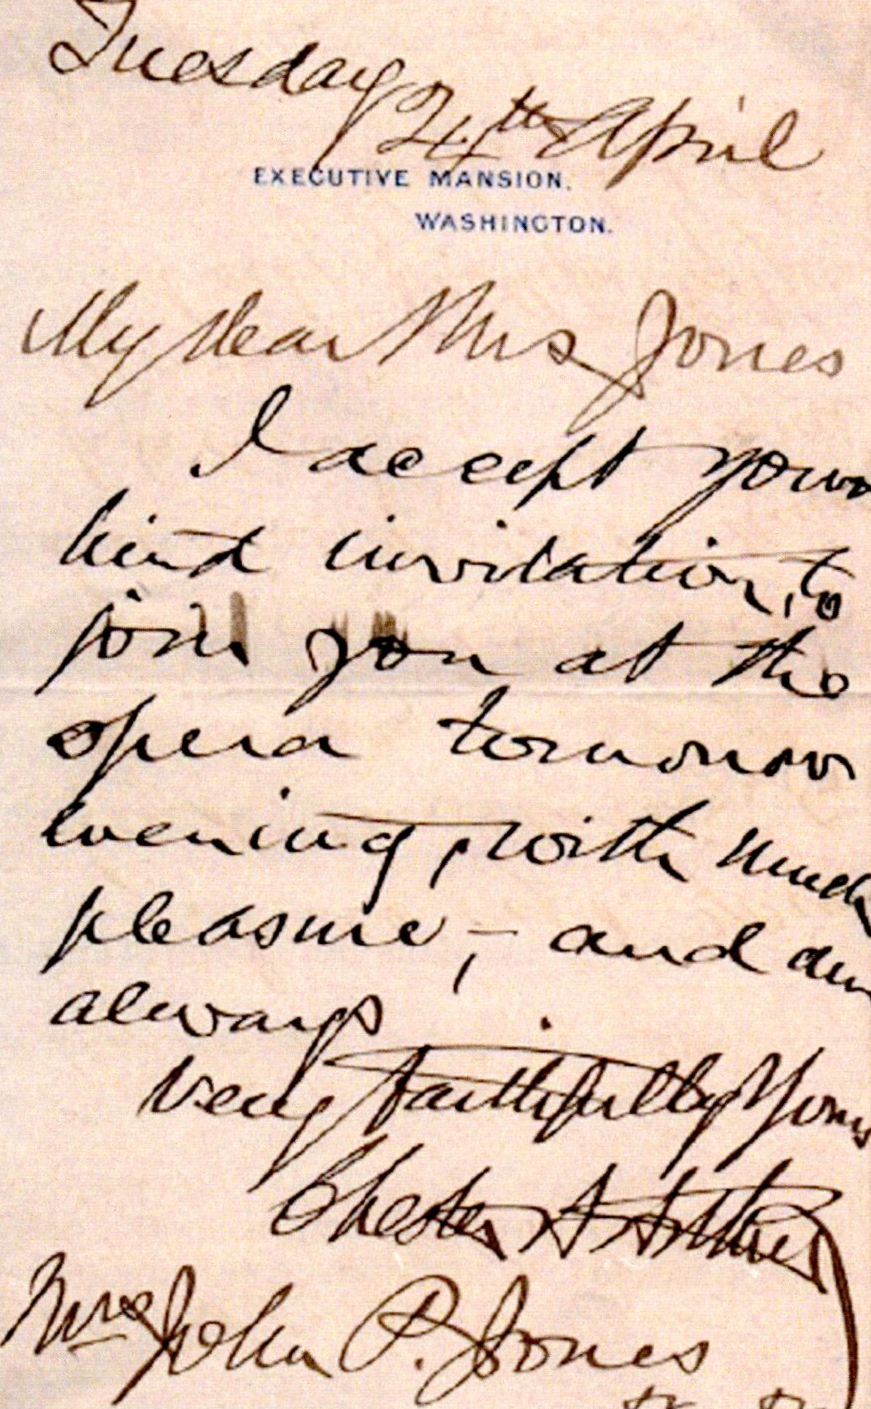 Tuesday
24th April
EXECUTIVE MANSION.
WASHINGTON.
My dear Mrs Jones
I accept your
kind invitation, to
join you at the
opera tomorrow
evening, with much
pleasure, — and am
always
Very faithfully Yours
Chester A Arthur
Mrs John P. Jones